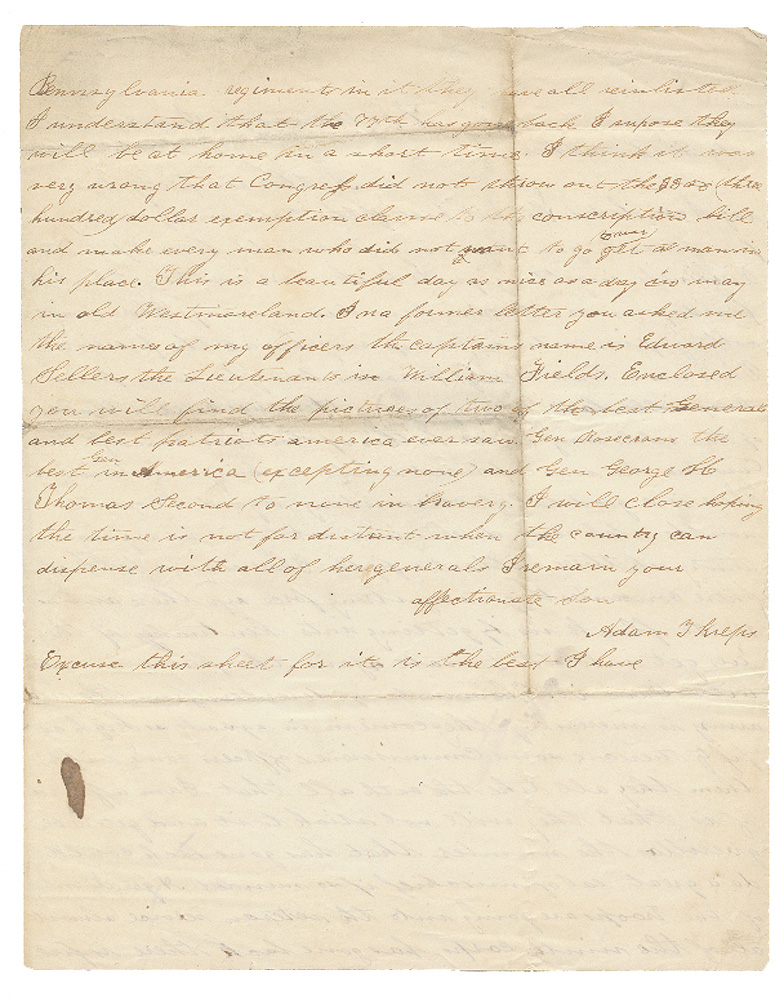 Pennsylvania regiments in it they have all reinlisted.
I understand that the 77th has gone back I supose they
will be at home in a short time. I think it was
very wrong that Congress did not throw out the (three
hundred) dollar exemption clause to the conscription bill
and make every man who did not want to go to war get a man in
his place. This is a beautiful day as nice as a day in may
in old Westmoreland. In a former letter you asked me
the names of my officers the captains name is Edward
Sellers the Lieutenants is William Fields. Enclosed
you will find the pictures of two of the best Generals
and best patriots america ever saw Gen Rosecrans the
best Gen in America (excepting none) and Gen George H
Thomas Second to none in bravery. I will close hoping
the time is not far distant when the country can
dispense with all of her generals I remain your
affectionate Son
Adam T Kreps
Excuse this sheet for it is the best I have